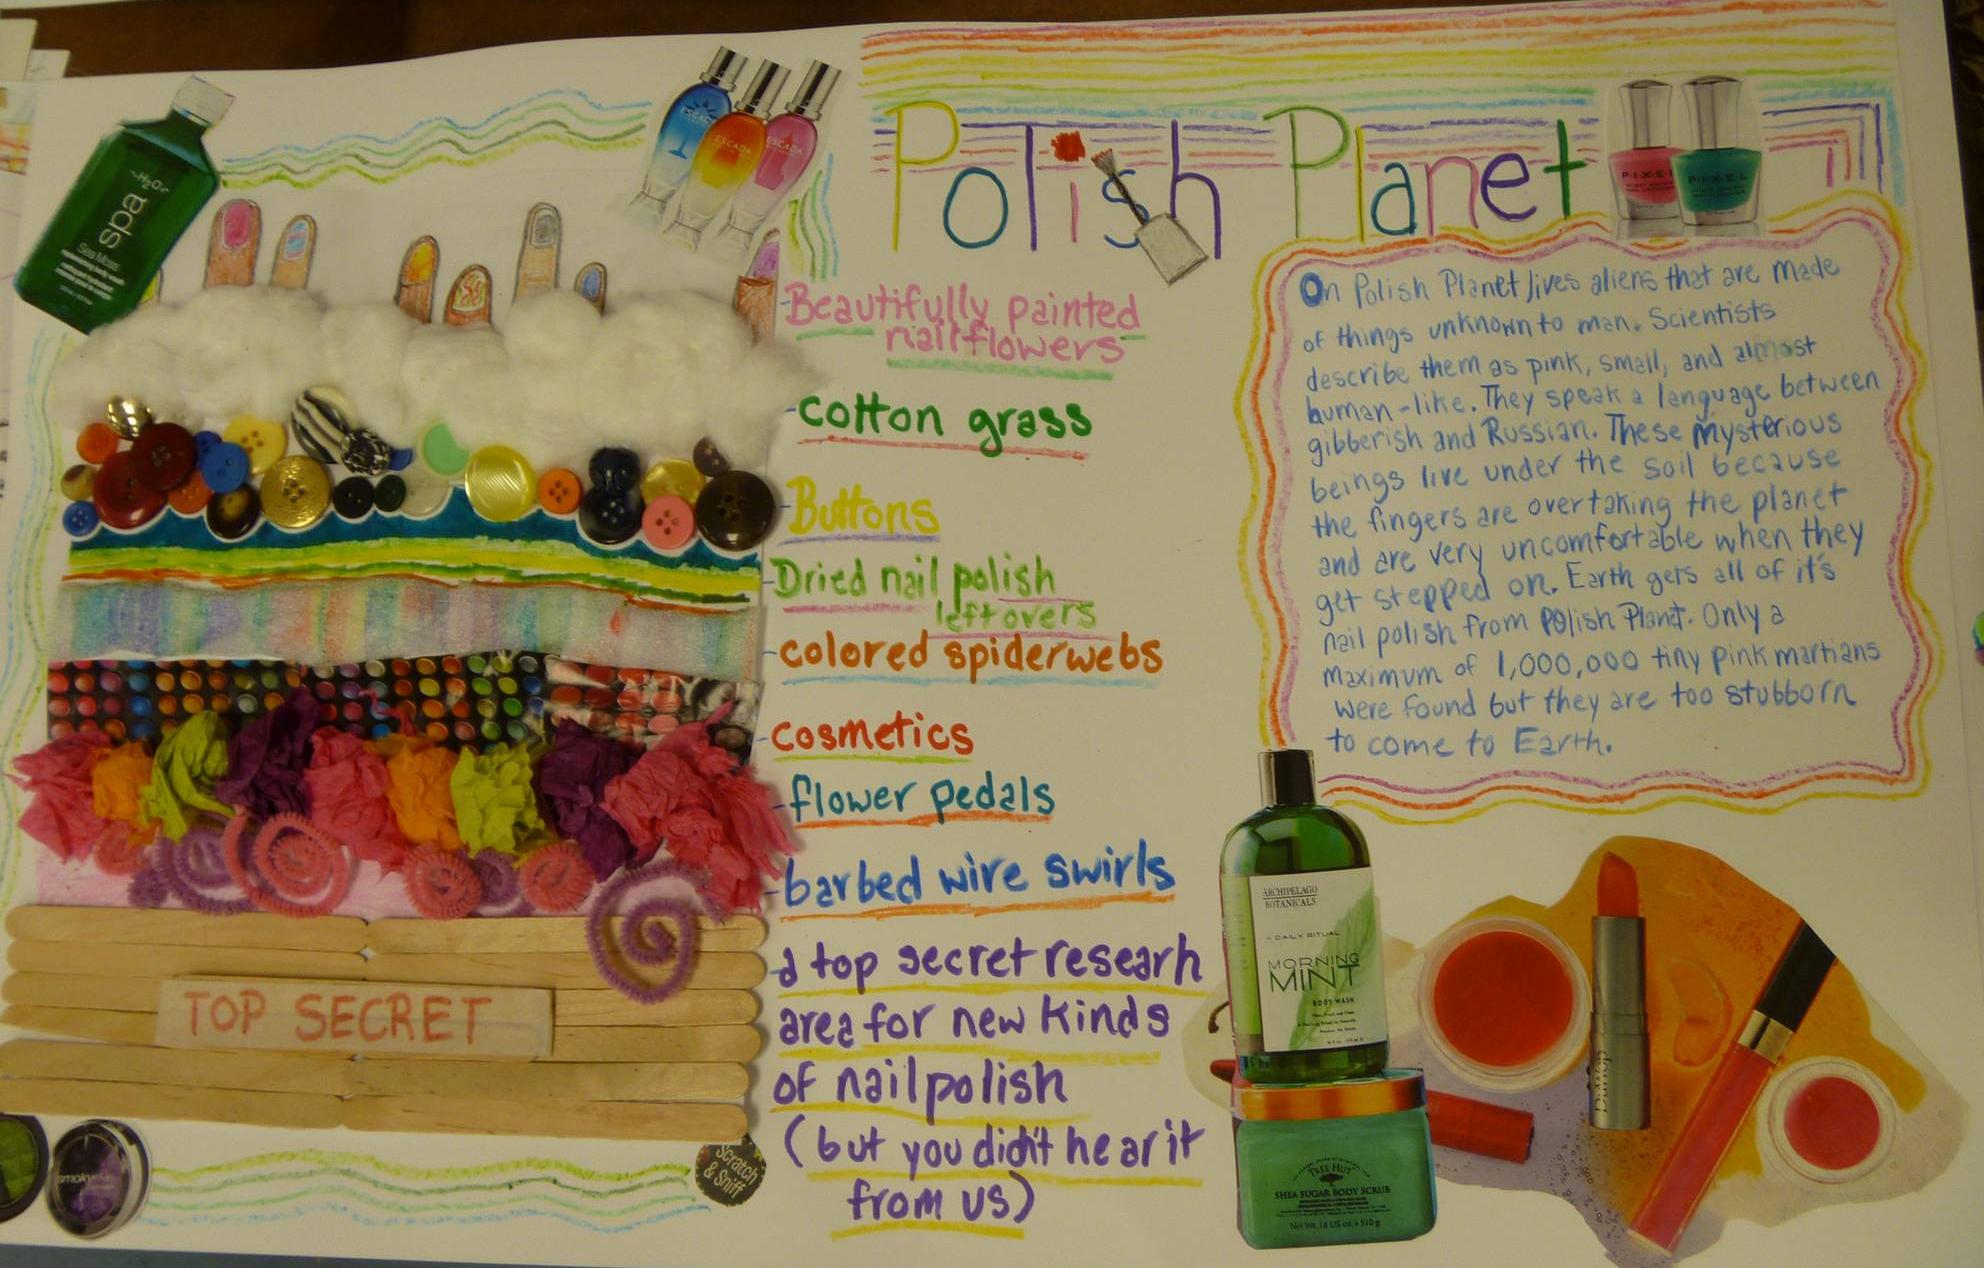 Polish Planet
-H₂O+
spa
Sea Moss
ESCADA
ESCADA
PIXEL
PIXEL
Beautifully painted
nailflowers
cotton grass
Buttons
Dried nail polish
leftovers
colored spiderwebs
cosmetics
flower pedals
barbed wire swirls
a top secret researh
area for new kinds
of nail polish
(but you didn't hear it
from us)
TOP SECRET
Scratch
& Sniff
On Polish Planet lives aliens that are made
of things unknown to man. Scientists
describe them as pink, small, and almost
human-like. They speak a language between
gibberish and Russian. These mysterious
beings live under the soil because
the fingers are overtaking the planet
and are very uncomfortable when they
get stepped on. Earth gets all of it's
nail polish from Polish Planet. Only a
maximum of 1,000,000 tiny pink martians
were found but they are too stubborn
to come to Earth.
ARCHIPELAGO
BOTANICALS
DAILY RITUAL
MORNING
MINT
BODY WASH
TREE HUT
SHEA SUGAR BODY SCRUB
Net Wt. 18 US oz. • 510 g